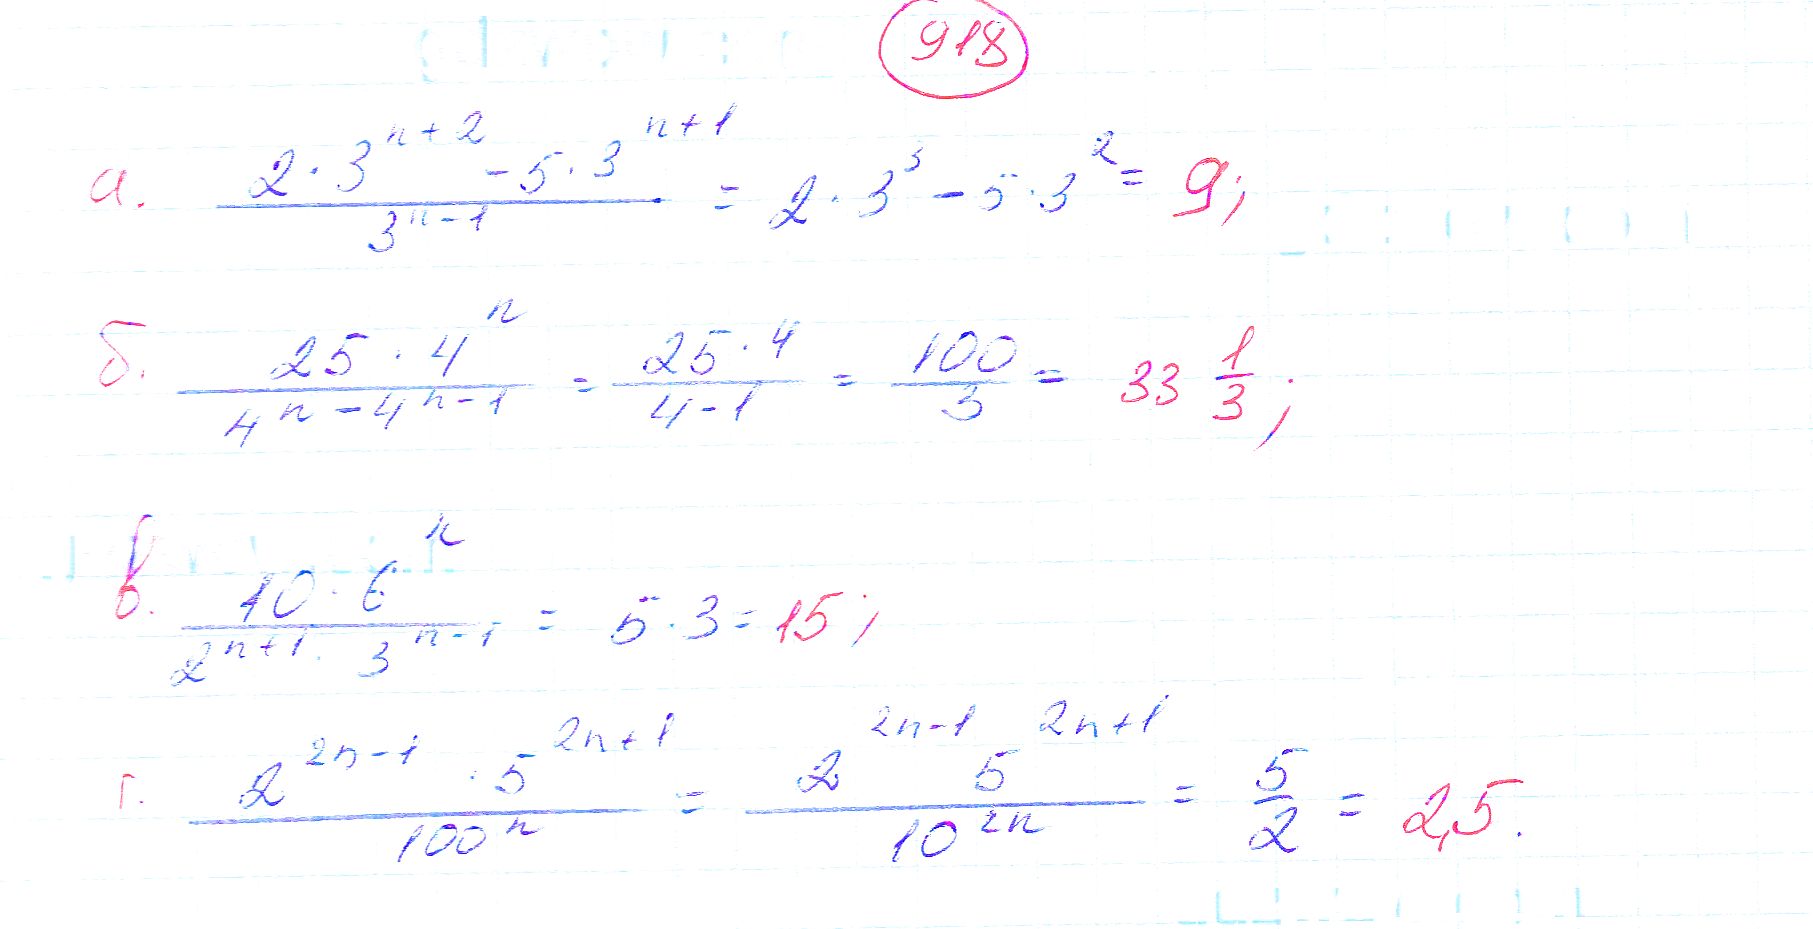 918
а. (2 · 3^(n+2) - 5 · 3^(n+1)) / 3^(n-1) = 2 · 3^3 - 5 · 3^2 = 9;
б. (25 · 4^n) / (4^n - 4^(n-1)) = (25 · 4) / (4 - 1) = 100/3 = 33 1/3;
в. (10 · 6^n) / (2^(n+1) · 3^(n-1)) = 5 · 3 = 15;
г. (2^(2n-1) · 5^(2n+1)) / 100^n = (2^(2n-1) 5^(2n+1)) / 10^(2n) = 5/2 = 2,5.